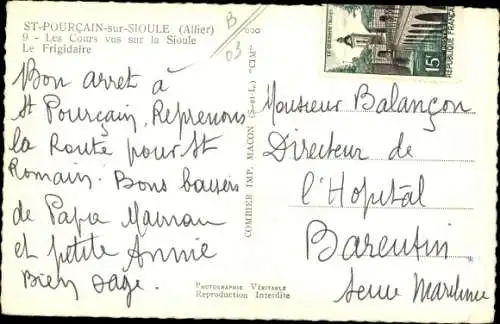 ST-POURÇAIN-sur-SIOULE (Allier)
9 - Les Cours vus sur la Sioule
Le Frigidaire
B
03
Bon arret à
St Pourçain, Reprenons
la Route pour St
Romain. Bons baisers
de Papa Maman
et petite Annie
Bien sage.
COMBIER IMP. MACON (S.-et-L.) "CIM"
15F
REPUBLIQUE FRANÇAISE
Monsieur Balançon
Directeur de
l'Hopital
Barentin
Seine Maritime
PHOTOGRAPHIE VÉRITABLE
Reproduction Interdite